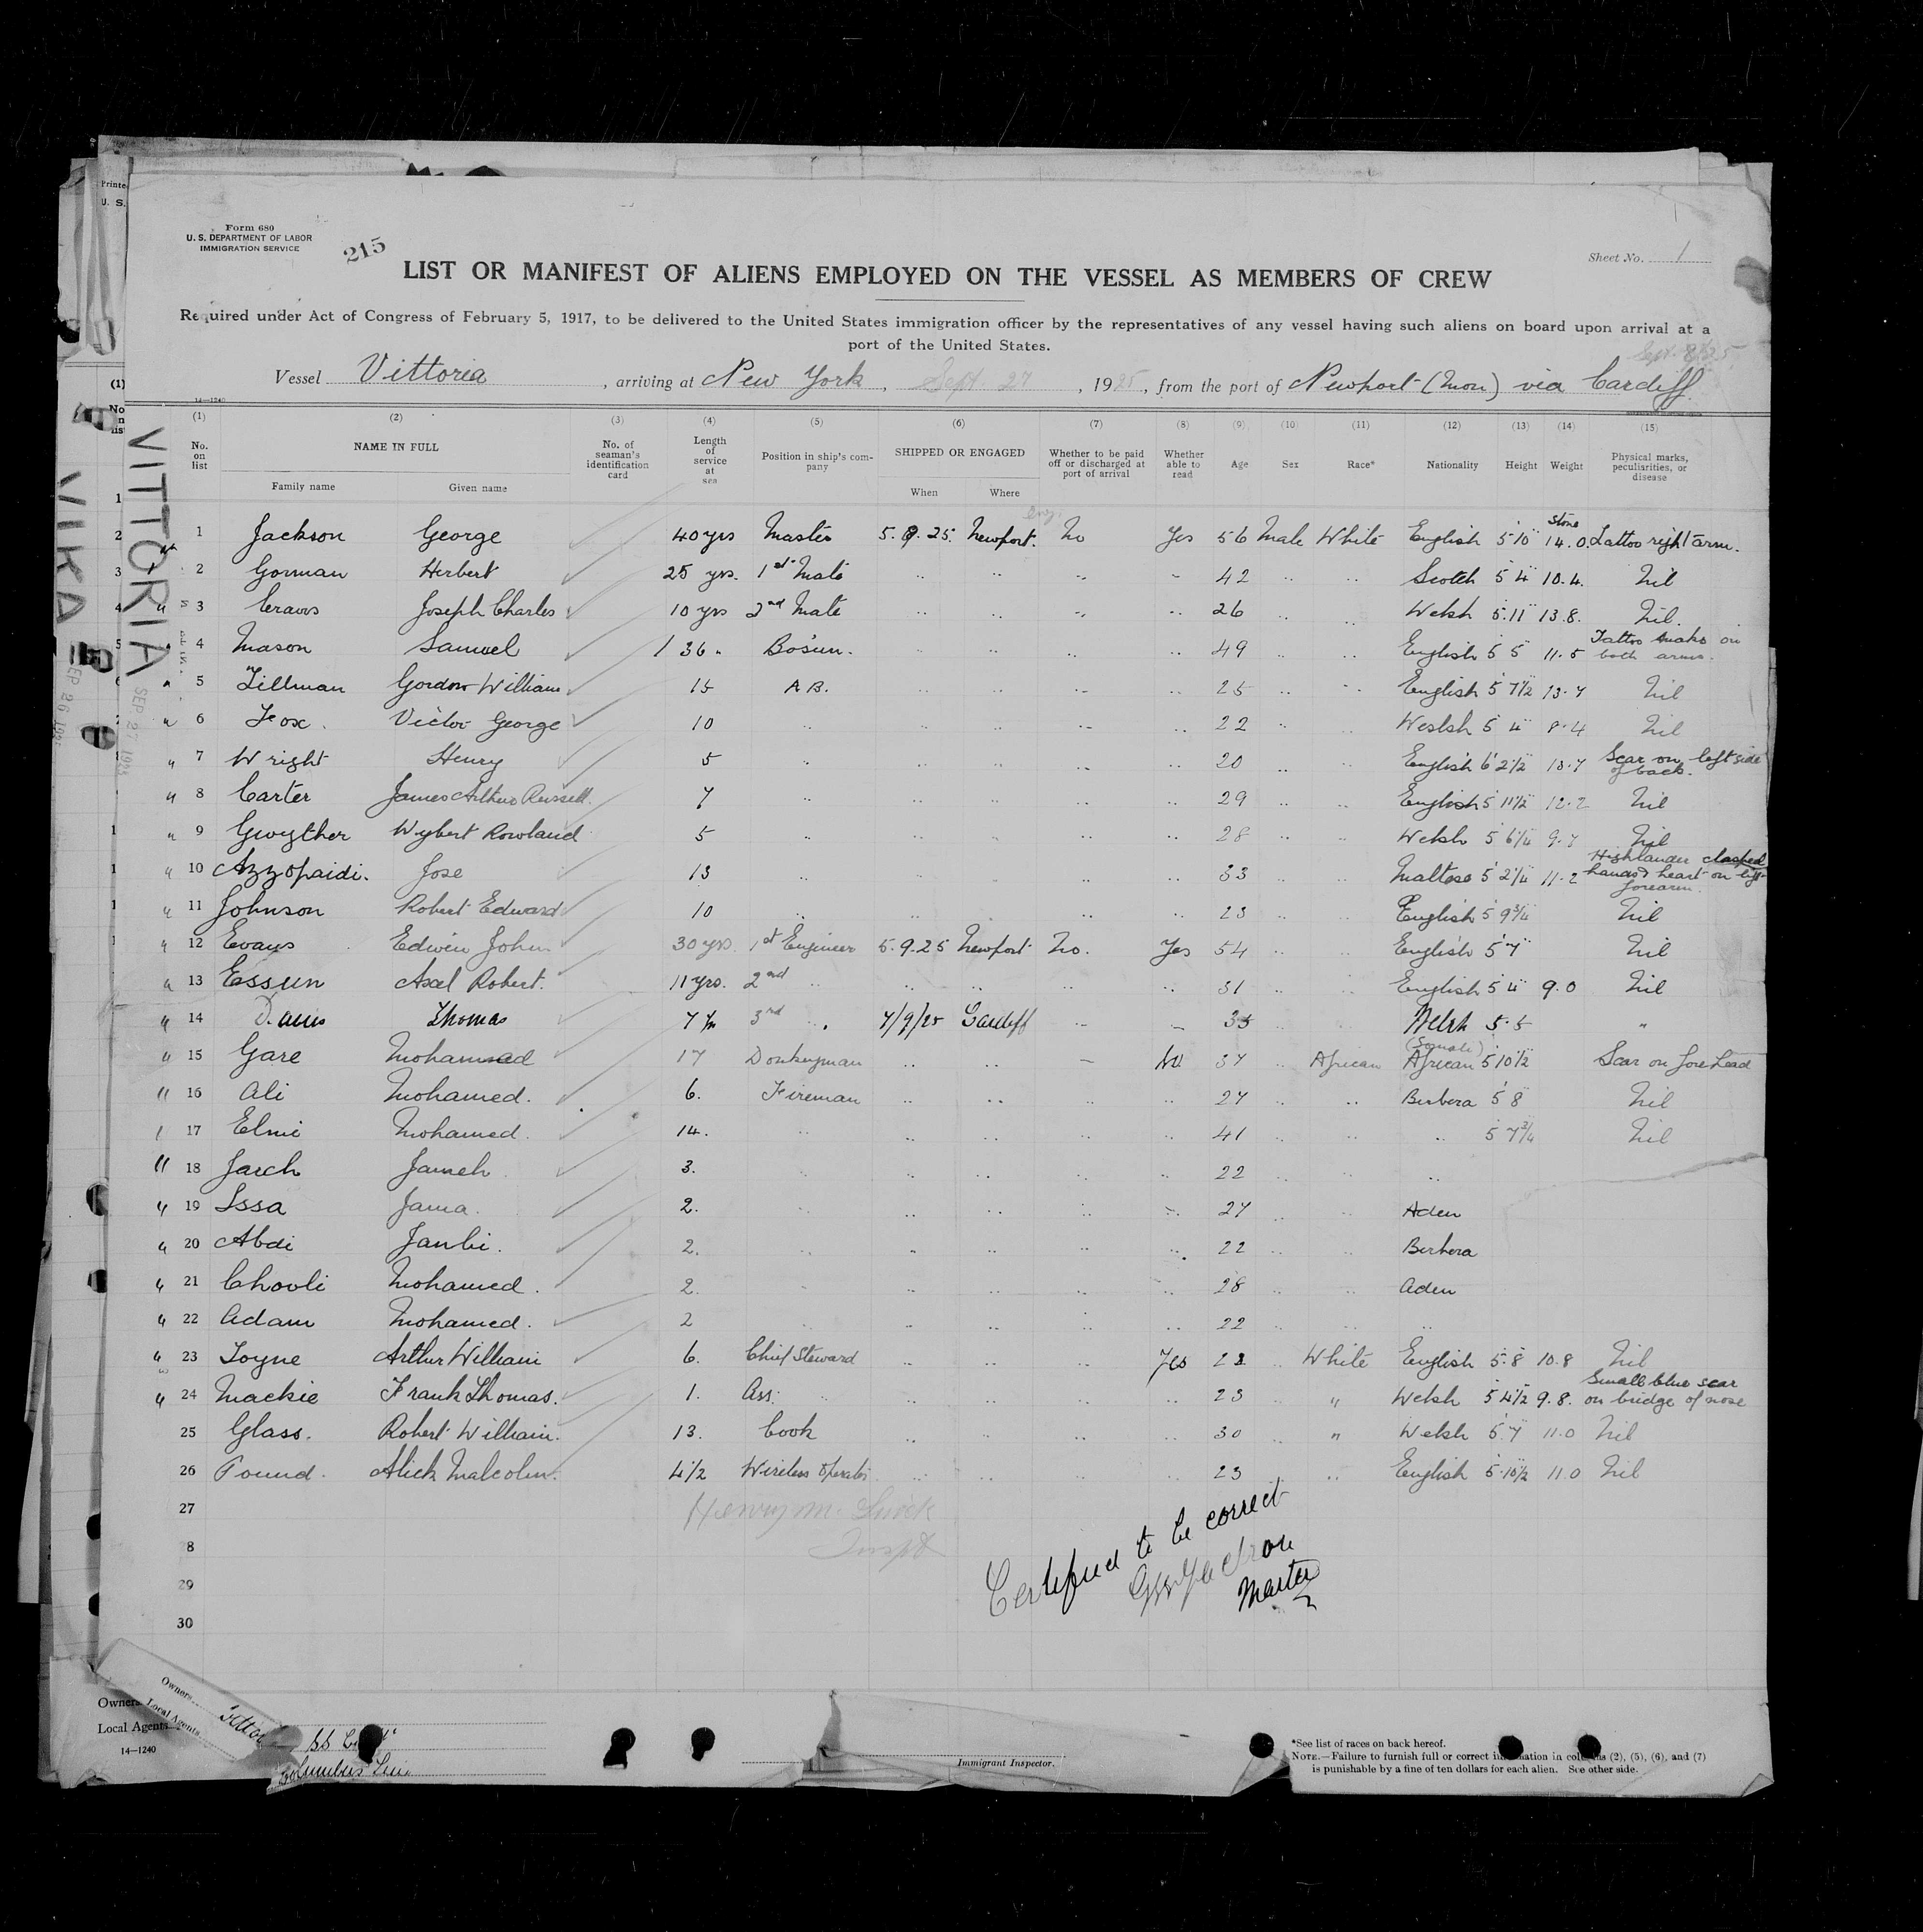 Form 680
U. S. DEPARTMENT OF LABOR
IMMIGRATION SERVICE
215
Sheet No. 1
LIST OR MANIFEST OF ALIENS EMPLOYED ON THE VESSEL AS MEMBERS OF CREW
Required under Act of Congress of February 5, 1917, to be delivered to the United States immigration officer by the representatives of any vessel having such aliens on board upon arrival at a
port of the United States.
Vessel Vittoria, arriving at New York, Sept 27, 1925, from the port of Newport (Mon) via Cardiff
14—1240
(1) (2) (3) (4) (5) (6) (7) (8) (9) (10) (11) (12) (13) (14) (15)
No. on list NAME IN FULL Family name Given name No. of seaman's identification card Length of service at sea Position in ship's company SHIPPED OR ENGAGED When Where Whether to be paid off or discharged at port of arrival Whether able to read Age Sex Race* Nationality Height Weight Physical marks, peculiarities, or disease
1 Jackson George 40 yrs Master 5.9.25. Newport. No Yes 56 Male White English 5'10" stone 14.0. Tattoo right arm.
2 Gorman Herbert 25 yrs. 1st Mate .. .. .. .. 42 .. .. Scotch 5'4" 10.4. Nil
3 Joseph Charles 10 yrs 2nd Mate .. .. .. .. 26 .. .. Welsh 5.11" 13.8. Nil.
4 Mason Samuel 36 " Bosun. .. .. .. .. 49 .. .. English 5'5" 11.5 Tattoo marks on both arms.
5 Tillman Gordon William 15 A B. .. .. .. .. 25 .. .. English 5'7½ 13.7 Nil
6 Fox. Victor George 10 .. .. .. .. .. 22 .. .. Weslsh 5'4" 8.4 Nil
7 Wright Henry 5 .. .. .. .. .. 20 .. .. English 6'2½ 10.7 Scar on left side of back.
8 Carter James Arthur Russell. 7 .. .. .. .. .. 29 .. .. English 5'11½ 12.2 Nil
9 Gwyther Wybert Rowland 5 .. .. .. .. .. 28 .. .. Welsh 5'6¼ 9.7 Nil
10 Azzopaidi. Jose 13 .. .. .. .. .. 33 .. .. Maltese 5'2¼ 11.2 Highlander clasped hands & heart on left forearm
11 Johnson Robert Edward 10 .. .. .. .. .. 23 .. .. English 5'9¾ Nil
12 Evans Edwin John 30 yrs. 1st Engineer 5.9.25 Newport No. Yes 54 .. .. English 5'7" Nil
13 Essun Axel Robert. 11 yrs. 2nd .. .. .. .. .. 31 .. .. English 5'4" 9.0 Nil
14 Davis Thomas 7 3rd .. 7/9/25 Cardiff .. .. 35 .. .. Welsh 5.5 "
15 Gare Mohammed 17 Donkeyman .. .. — No 37 .. African (Somali) African 5'10½ Scar on forehead
16 Ali Mohamed. 6. Fireman .. .. .. .. 27 .. .. Berbera 5'8" Nil
17 Elmi Mohamed. 14. .. .. .. .. .. 41 .. .. .. 5'7¾ Nil
18 Jarch Jameh 3. .. .. .. .. .. 22 .. .. ..
19 Issa Jama. 2. .. .. .. .. .. 27 .. .. Aden
20 Abdi Jambi. 2. .. .. .. .. .. 22 .. .. Berbera
21 Chooli Mohamed. 2. .. .. .. .. .. 28 .. .. Aden
22 Adam Mohamed. 2 .. .. .. .. .. 22 .. .. ..
23 Toyne Arthur William 6. Chief Steward .. .. .. Yes 23 .. White English 5.8" 10.8 Nil
24 Mackie Frank Thomas. 1. Ass: .. .. .. .. .. 23 .. " Welsh 5'4½ 9.8. Small blue scar on bridge of nose
25 Glass. Robert William. 13. Cook .. .. .. .. 30 .. " Welsh 5.7" 11.0 Nil
26 Pound. Alick Malcolm. 4½ Wireless Operator .. .. .. .. 23 .. .. English 5.10½ 11.0 Nil
27
28
29
30
Certified to be correct
Master
VITTORIA
SEP 27 1925
VIKA
SEP 26 1925
Owners
Local Agents
14—1240
Columbus Line
Immigrant Inspector.
*See list of races on back hereof.
NOTE.—Failure to furnish full or correct information in columns (2), (5), (6), and (7)
is punishable by a fine of ten dollars for each alien. See other side.